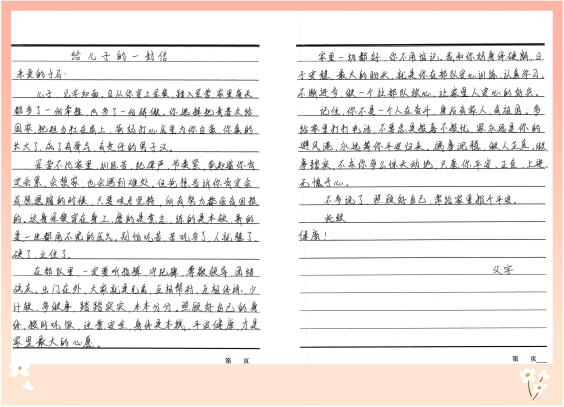 给儿子的一封信
亲爱的子马:
儿子,见字如面,自从你穿上军装,踏入军营家里每天
都多了一份牵挂,也多了一份骄傲。你选择把青春交给
国家,把担当扛在肩上,爸妈打心底里为你自豪,你真的
长大了,成了有骨气、有责任的男子汉。
军营不比家里,训练苦,纪律严,节奏紧,爸知道你肯
定会累,会想家,也会遇到难处,但爸想告诉你肯定会
有想退缩的时候,只要咬牙坚持,所有努力都会有回报
的。这身军装穿在身上,磨的是意志,练的是本领,养的
是一生都用不完的底气。别怕吃苦,苦吃多了,人就强了,
硬了,立住了。
在部队里一定要听指挥,守纪律,尊敬领导,团结
战友,出门在外,大家就是兄弟,互相帮衬,互相体谅,少
计较,多做事,踏踏实实,本本分分。照顾好自己的身
体,按时吃饭,注意安全,身体是本钱,平安健康,才是
家里最大的心愿。
第 页
家里一切都好,你不用惦记,我和你妈身体硬朗,日
子安稳,最大的盼头,就是你在部队安心训练,认真学习,
不断进步,做一个让部队放心,让家里人安心的好兵。
记住,你不是一个人在奋斗,身后有家人,有祖国,多
给家里打打电话,不要总是报喜不报忧,家永远是你的
避风港,永远盼你平安归来,满身沉稳,做人正直,做
事踏实,不求你多么惊天动地,只愿你平安,正直,上进,
无愧于心。
不多说了,照顾好自己,常给家里报个平安。
此致
健康!
父字
第 页